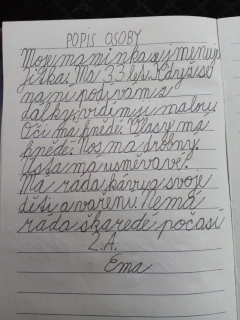 POPIS OSOBY
Moje maminka se jmenuje
Jitka. Má 33 let. Když se
na ni podívám z
dálky, vidím ji malou.
Oči má hnědé. Vlasy má
hnědé. Nos má drobný.
Ústa má usměvavé.
Má ráda kávu, svoje
děti a vaření. Nemá
ráda škaredé počasí
2.A.
Ema